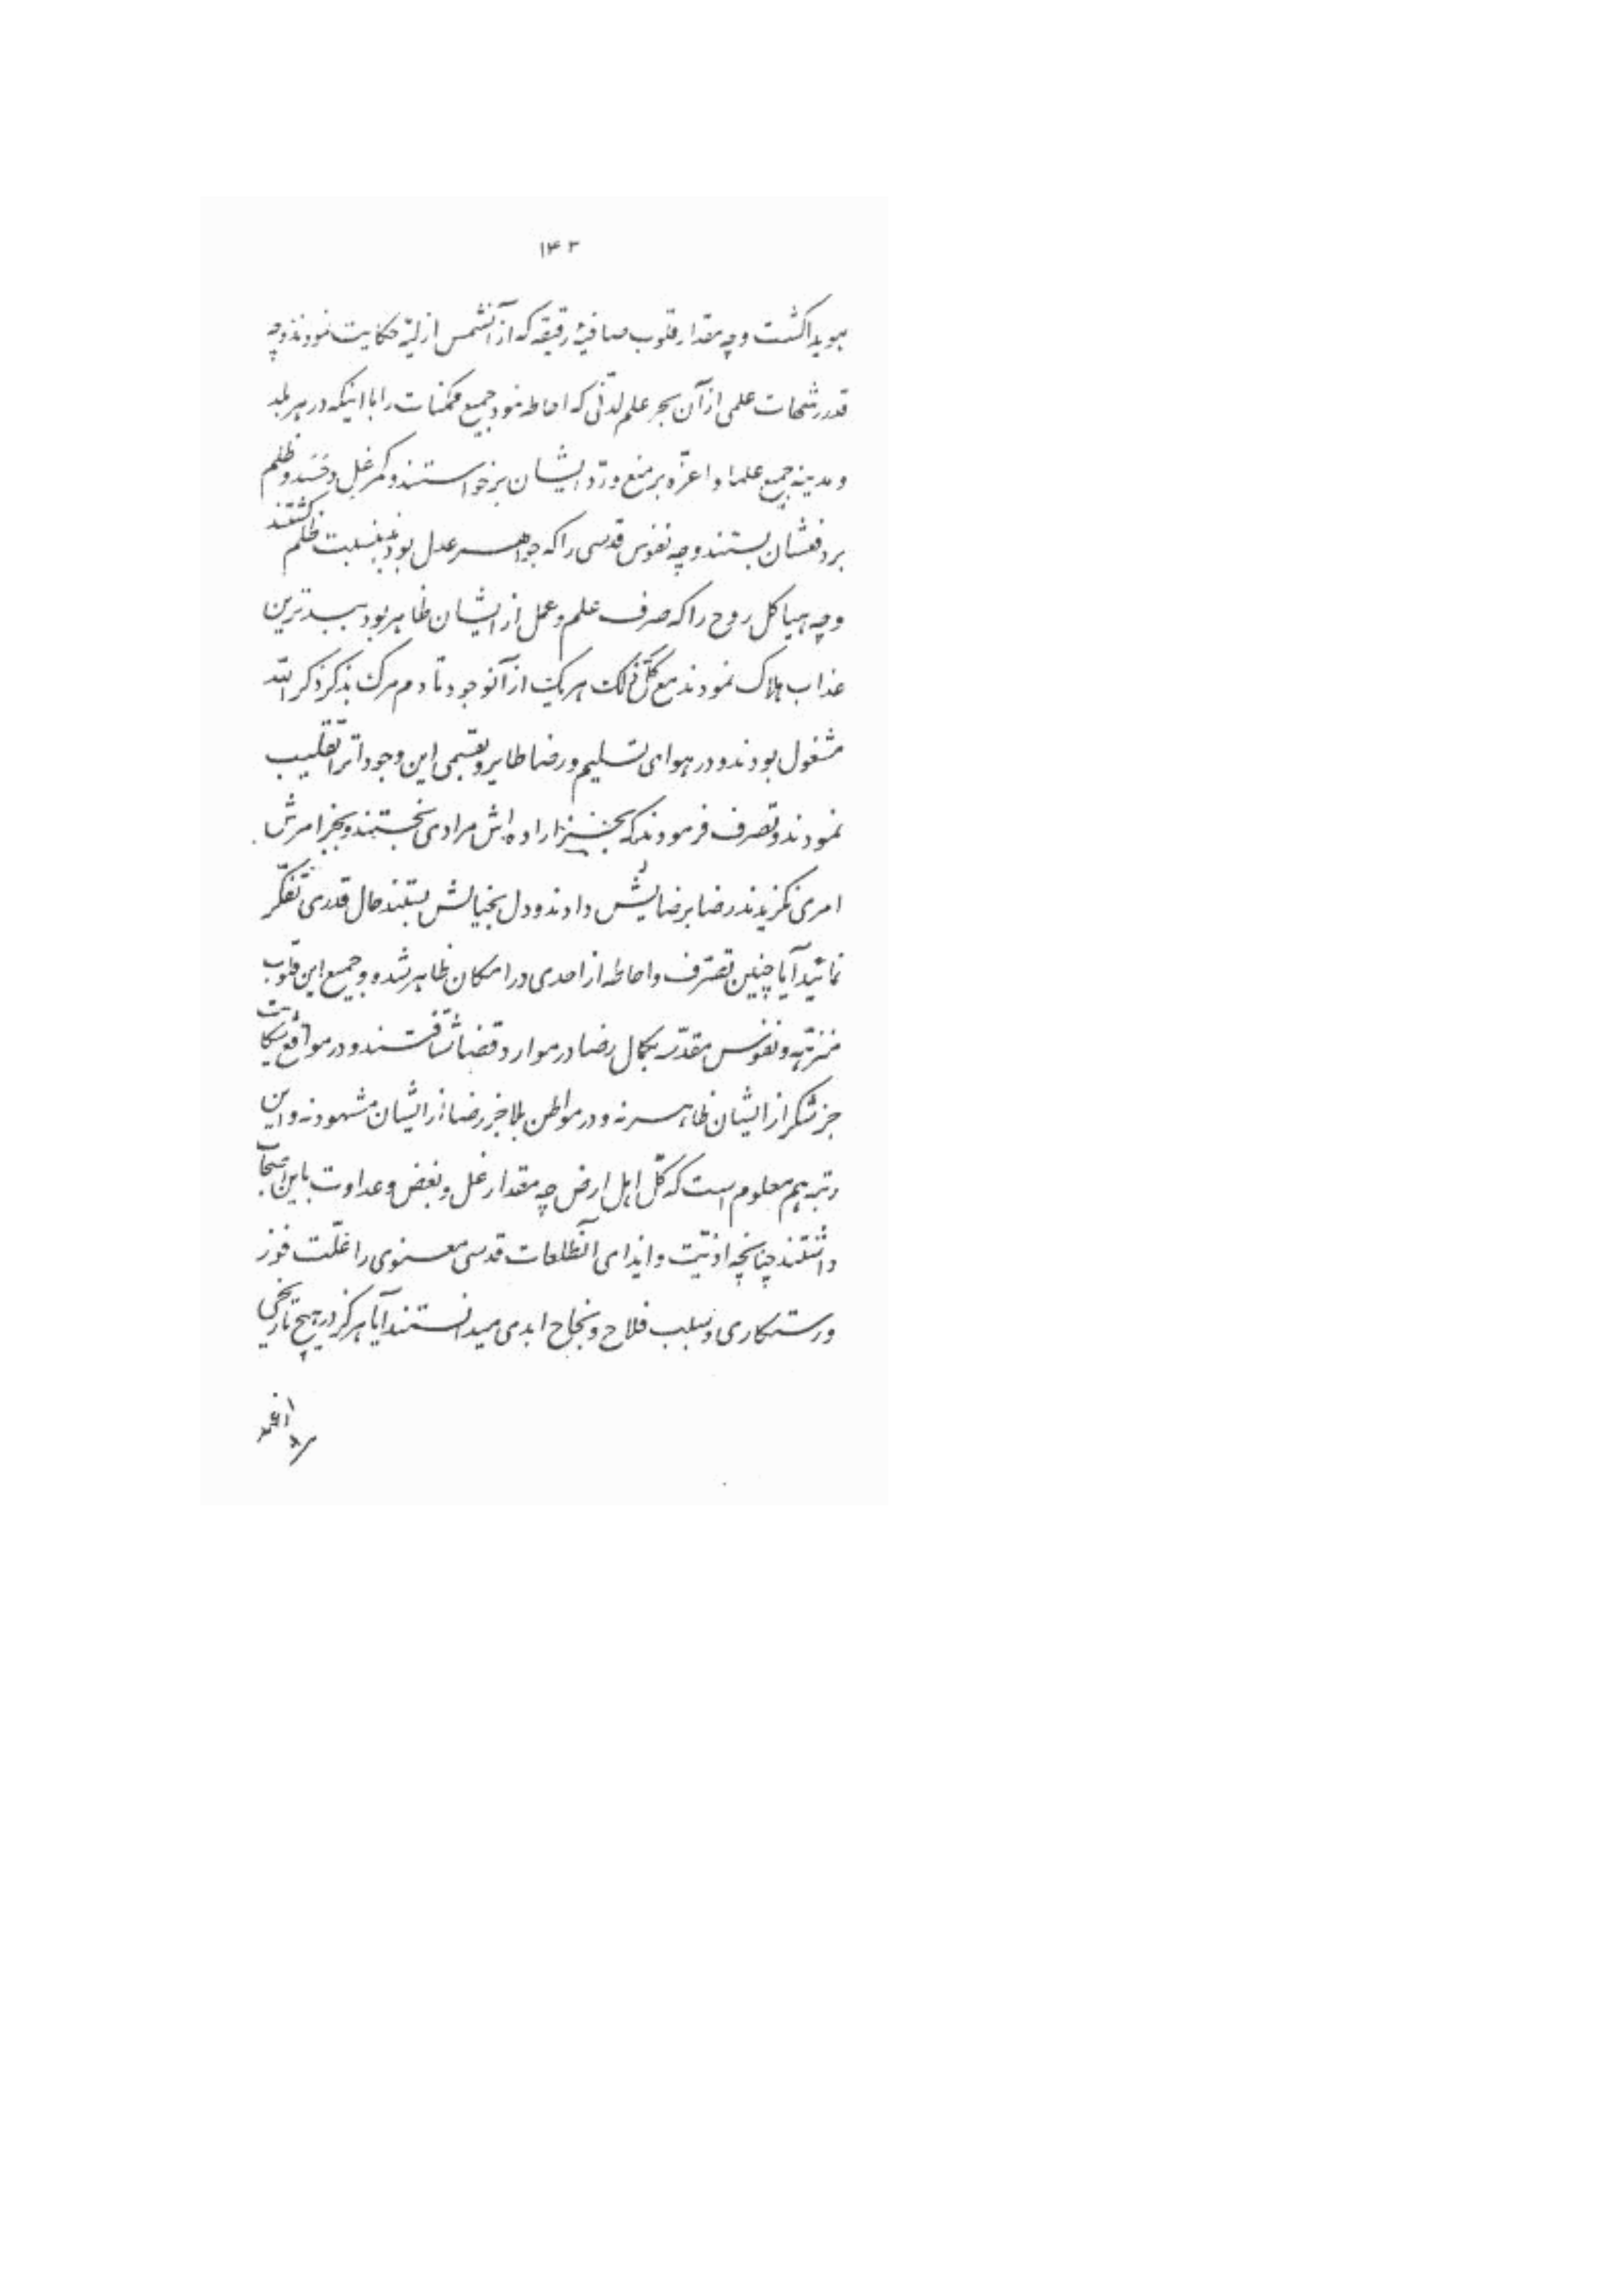 ۱۴۳
هویدا گشت و چه مقدار قلوب صافیهٔ رقیقه که از آنشمس ازلیّه حکایت نمودند و چه
قدر رشحات علمی از آن بحر علم لدنّی که احاطه نمود جمیع ممکنات را با اینکه در هر بلد
و مدینه جمیع علما و اعزّه بر منع و ردّ ایشان برخواستند و کمر غلّ و حسد و ظلم
بر دفعشان بستند و چه نفوس قدسی را که جواهر عدل بودند بنسبت ظلم کشتند
و چه هیاکل روح را که صرف علم و عمل از ایشان ظاهر بود ببدترین
عذاب هلاک نمودند مع کلّ ذلک هر یک از آنوجود تا دم مرگ بذکر ذکر اللّه
مشغول بودند و در هوای تسلیم و رضا طایر و بقسمی این وجودات را تقلیب
نمودند و تصرف فرمودند که بجز اراده اش مرادی نجستند و بجز امرش
امری نگزیدند رضا برضایش دادند و دل بخیالش بستند حال قدری تفکّر
نمائید آیا چنین تصّرف و احاطه از احدی در امکان ظاهر شده و جمیع این قلوب
منزّهه و نفوس مقدّسه بکمال رضا در موارد قضا شتافتند و در مواقع شکایت
جز شکر از ایشان ظاهر نه و در مواطن بلا جز رضا از ایشان مشهود نه و این
رتبه هم معلوم است که کلّ اهل ارض چه مقدار غل و بغض و عداوت باین اصحاب
داشتند چنانچه اذیّت و ایذای آنطلعات قدسی معنوی را علّت فوز
و رستکاری و سبب فلاح و نجاح ابدی میدانستند آیا هرگز در هیچ تاریخی